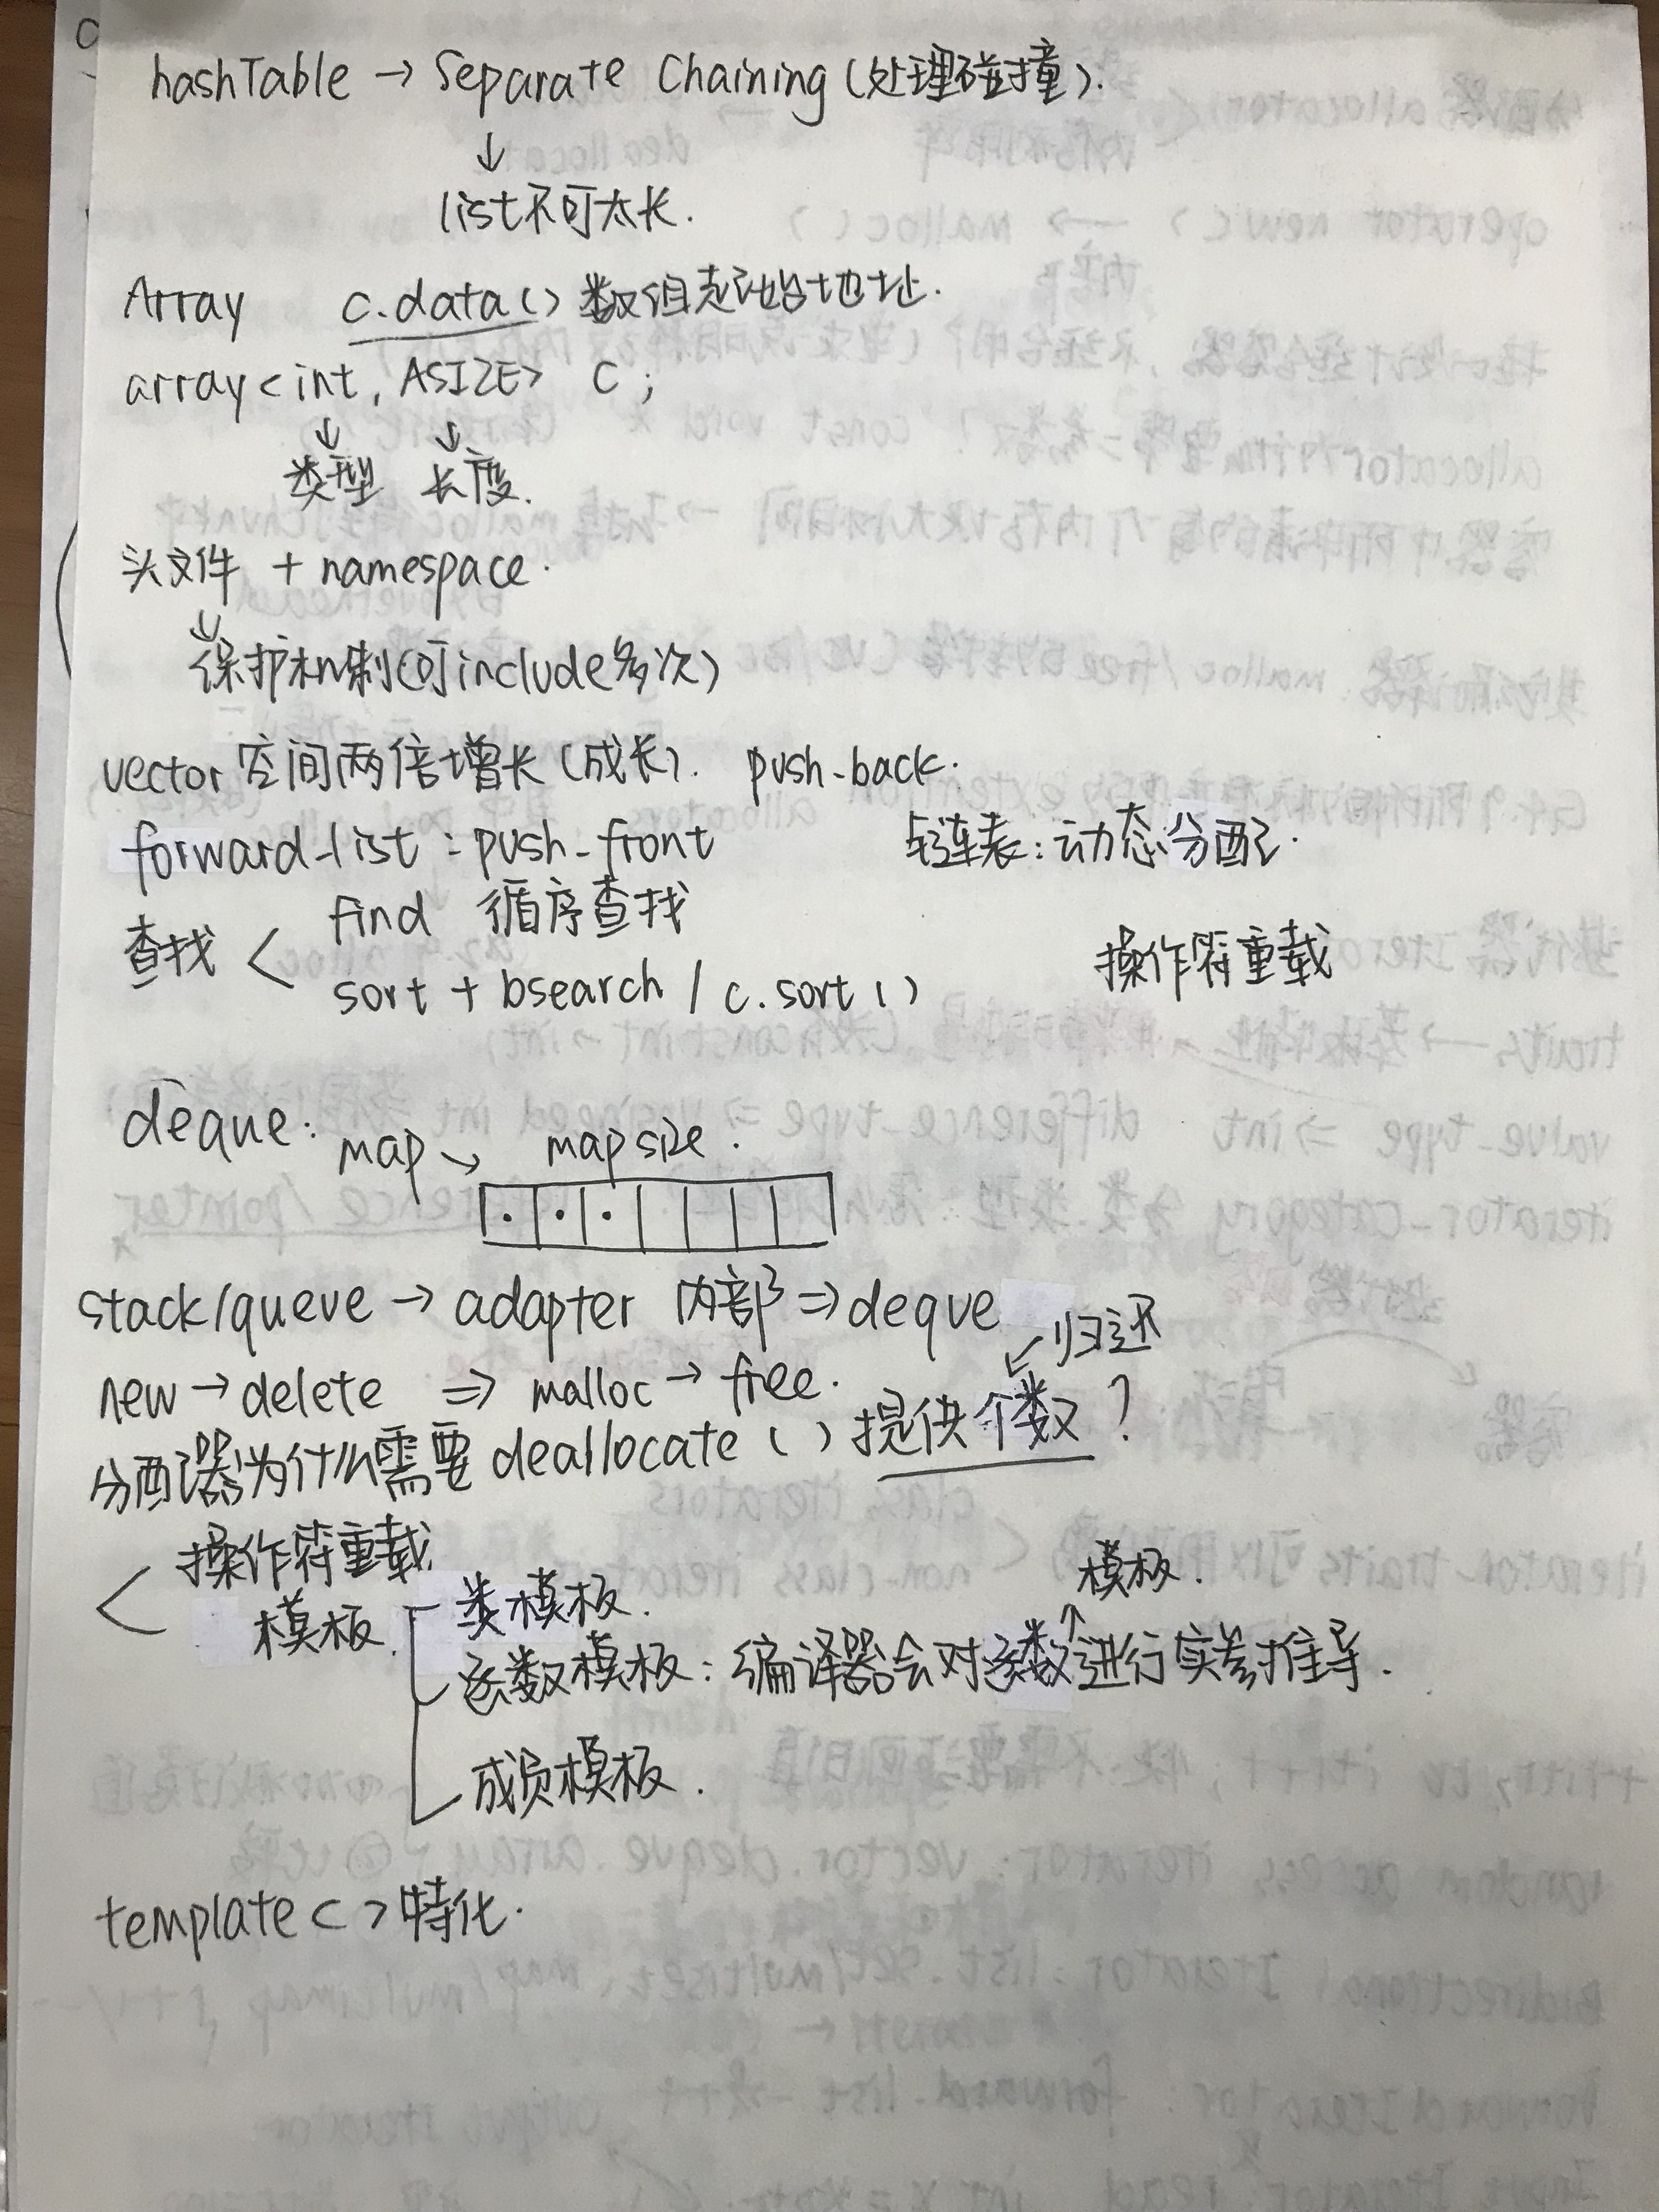 hashTable → Separate Chaining (处理碰撞).
↓
list不可太长.
Array c.data() 数组起始地址.
array<int, ASIZE> c;
↓ ↓
类型 长度.
头文件 + namespace.
↓
保护机制(可include多次)
vector 空间两倍增长(成长). push-back.
forward-list: push-front 链表:动态分配.
查找 < find 循序查找
sort + bsearch / c.sort() 操作符重载
deque: map → map size.
stack/queue → adapter 内部 ⇒ deque
↙归还
new → delete ⇒ malloc → free.
分配器为什么需要 deallocate() 提供个数?
< 操作符重载
模板. 类模板. 模板.
函数模板: 编译器会对函数↑进行实参推导.
成员模板.
template<>特化.